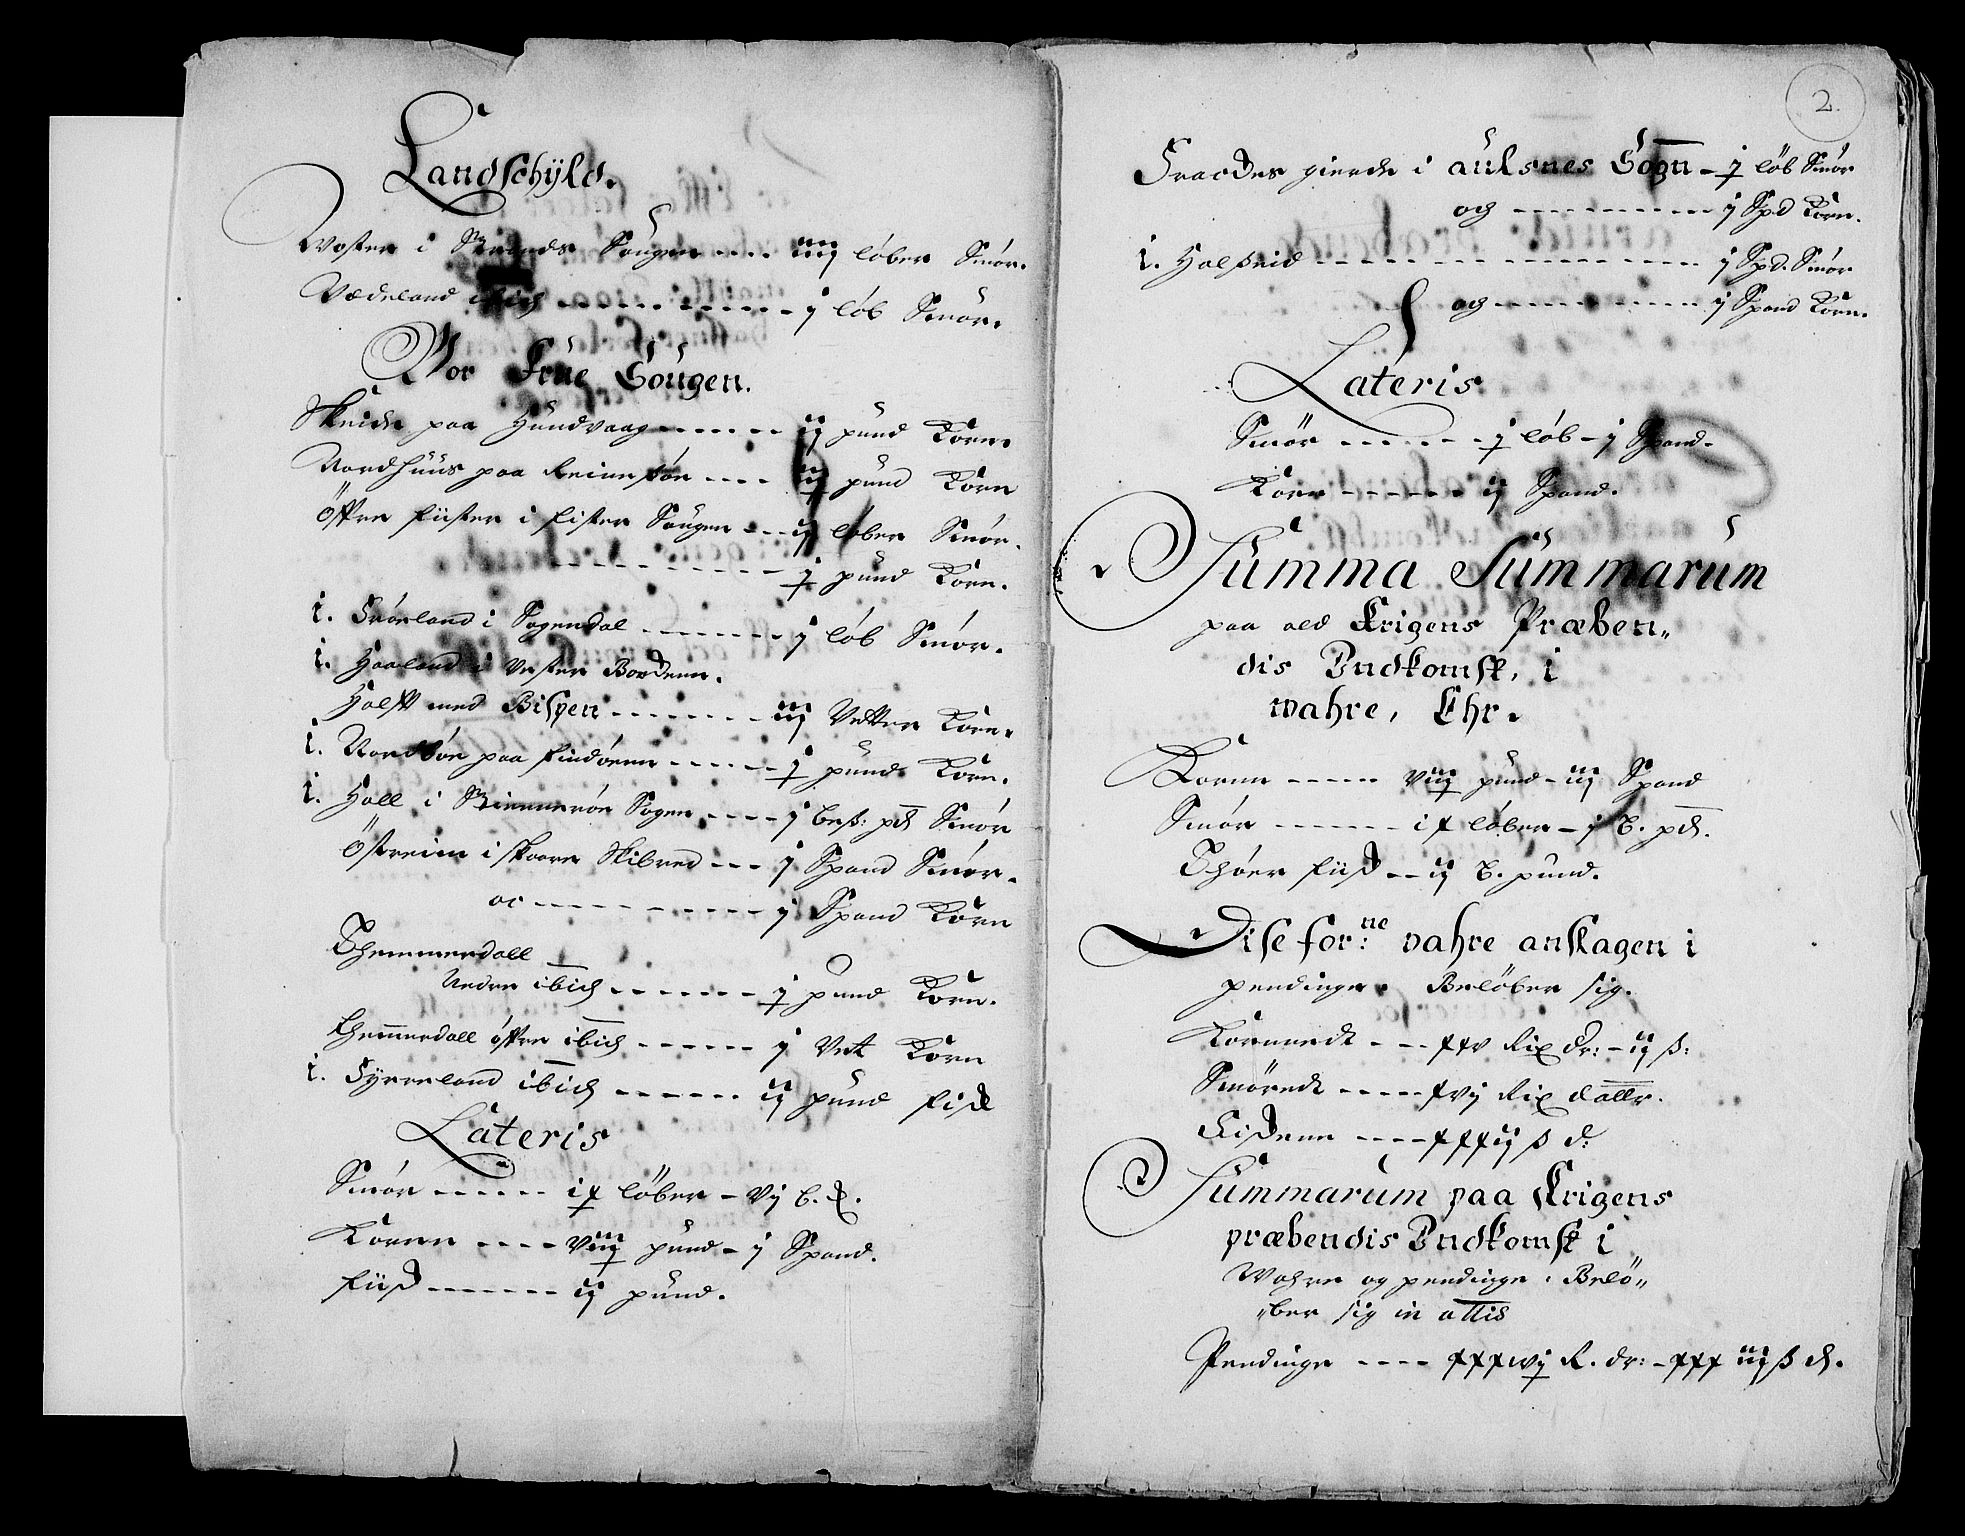 Landschÿld.
Woster i Strands Sougen ---- iiij löber Smör.
Vædeland ibid ---------- j löb Smör.
Vor Frue Sougen.
Skeide paa Hundvaag ------ ij pund Korn
Nordhuus paa Rennesöe ---- iij pund Korn
Öffre fiister i fister Sougen --- ij löber Smör.
---------- j pund Korn.
i. Frörland i Sogendal ------- j löb Smör.
i. Haaland i Vester Boedenn.
Halfft med Bispen ------- iij Vetter Korn.
i. Nordböe paa findöenn ------ j pund Korn.
i. Hall i Rennesöe Sogen ---- j besz: pd Smör
Östreim i skaare Skibred --- j Spand Smör.
oc ---------- j Spand Korn
Themmerdall
Nedre ibid ------- j pund Korn.
Themmerdall öffre ibid ------ j Vet Korn
i. Fyrreland ibid ------ ij pund fisk
Lateris
Smör ------ ix löber - vj b. d.
Kornn ---- viij pund - j Spand.
fiisk ------- ij pund.
2.
Fraades gierde i aulsnes Sogn - j löb Smör
och ---------- j Spd Korn.
i. Halsseid ---------------- j Spd. Smör
och ---------- j Spand Korn.
Lateris
Smör ------- j löb - j Spand.
Korn ------ ij Spand.
Summa Summarum
paa ald Krigens Præben„
dis Indkomst, i
wahre, Ehr.
Kornn ----- viij pund - iij Spand
Smör ------ ix löber - j b. pd.
Thöer fiisk -- ij b. pund.
Dise for:ne vahre anslagen i
pendinge. Belöber sig.
Kornnedt --- xxv Rix dr: - ij ß:
Smöredt ----- xvj Rix dallr.
Fiskenn ---- xxxij ß d:
Summarum paa Krigens
præbendis Indkomst i
Wahre og pendinge. Belö„
„ber sig in allis
Pendinge ---- xxxxvij R. dr: - xxx iiij ß d.